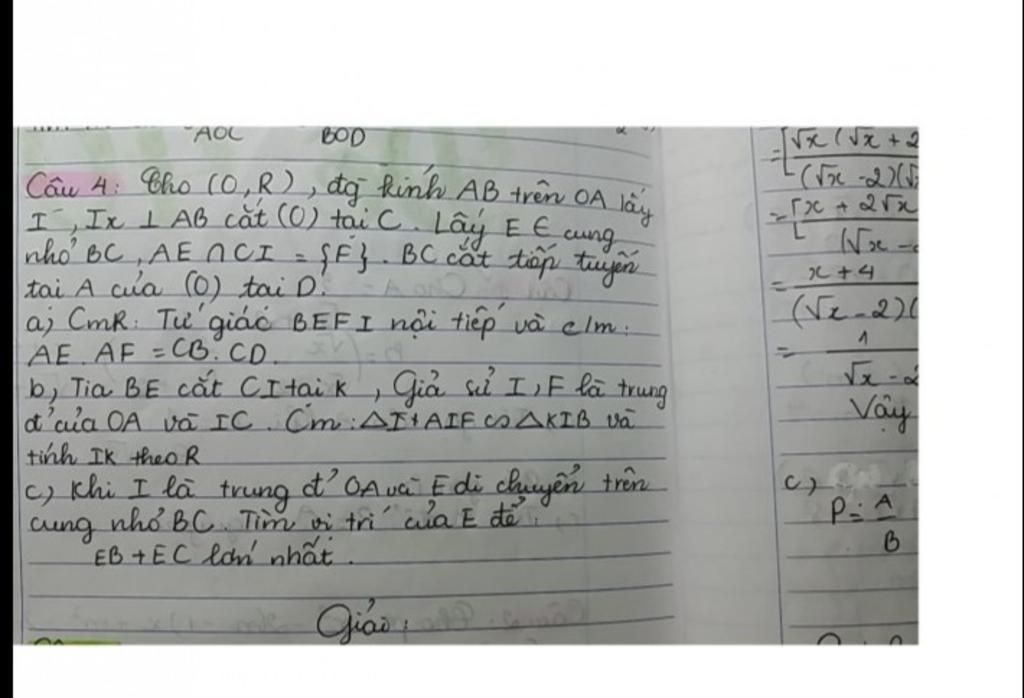 AOC BOD
Câu 4: Cho (O,R), đg kính AB trên OA lấy
I, Ix ⊥ AB cắt (O) tại C. Lấy E ∈ cung
nhỏ BC, AE ∩ CI = {F}. BC cắt tiếp tuyến
tại A của (O) tại D.
a) CmR: Tứ giác BEFI nội tiếp và c/m:
AE. AF = CB. CD.
b, Tia BE cắt CI tại K, Giả sử I, F là trung
đ' của OA và IC. Cm: △I AIF ∽ △KIB và
tính IK theo R
c) Khi I là trung đ' OA và E di chuyển trên
cung nhỏ BC. Tìm vị trí của E để.
EB + EC lớn nhất.
Giải:
=[√x (√x + 2
(√x - 2)(√
=[x + 2√x
(√x -
= x + 4
(√x - 2)(
= 1
√x - 2
Vậy
c,
P = A
B